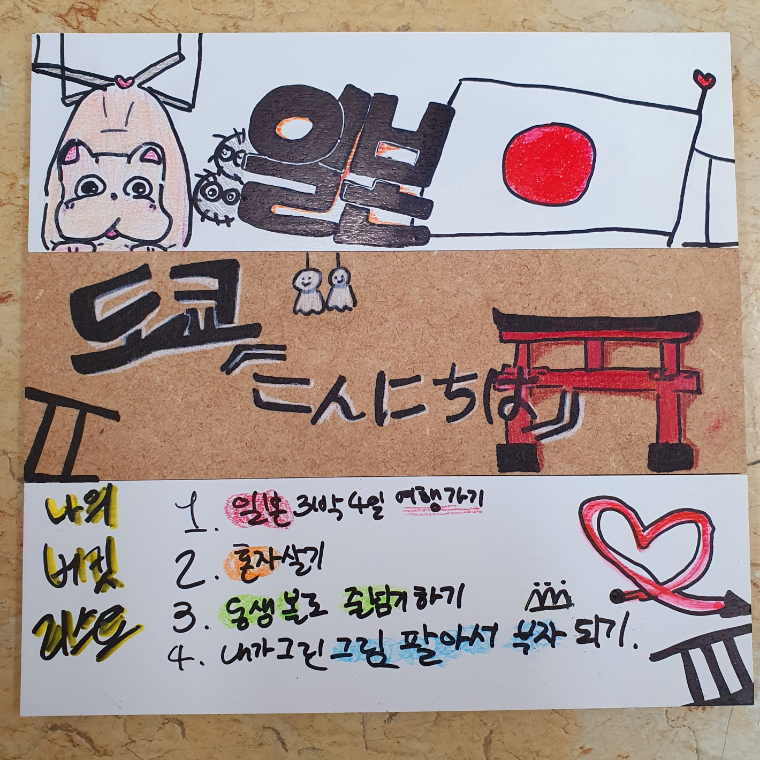 일본
도쿄
《こんにちは》
나의
버킷
리스트
1. 일본 3박 4일 여행가기
2. 혼자살기
3. 동생 볼로 줄넘기하기
4. 내가그린 그림 팔아서 부자 되기.